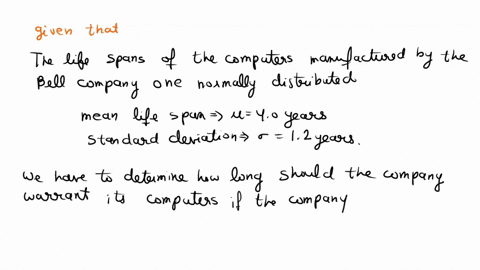 given that
The life spans of the computers manufactured by the
Bell company one normally distributed
mean life span ⇒ μ = 4.0 years
standard deviation ⇒ σ = 1.2 years.
we have to determine how long should the company
warrant its computers if the company